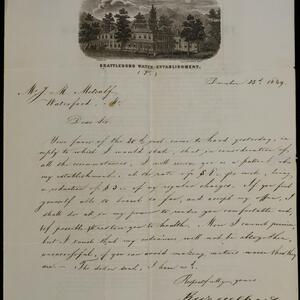 BRATTLEBORO WATER-ESTABLISHMENT.
(Vt.)
December 13th, 1849
Mr. J. M. Metcalf,
Waterford,
Dear Sir,
Your favor of the 10th just came to hand, yesterday, in
reply to which I would state, that in consideration of
all the circumstances, I will receive you as a patient into
my establishment, at the rate of $ 8, per week, being
a reduction of $ 2 on my regular charges. If you feel
yourself able to spend so far, and accept my offer, I
shall do all in my power to render you comfortable and,
if possible to restore you to health. Now I cannot promise,
but I trust that my endeavors will not be altogether
unsuccessful, if you can avoid making matters worse than they
are
Respectfully yours